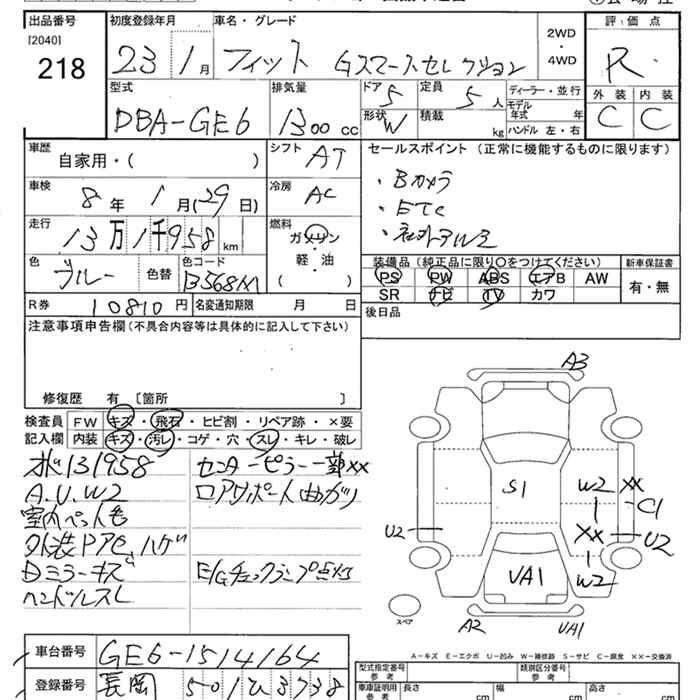 出品番号
[2040]
218
初度登録年月
車名・グレード
23 1月
フィット Gスマートセレクション
2WD
・
4WD
評価点
R
外装 内装
C C
型式
DBA-GE6
排気量
1300 cc
ドア 5
定員 5人
形状 W
積載 kg
ディーラー・並行
モデル
年式 年
ハンドル 左・右
車歴
自家用・( )
シフト AT
車検
8年 1月(29日)
冷房 AC
走行
13万1千958 km
燃料
ガソリン
軽・油
( )
色 ブルー 色替
色コード
B568M
R券 10810円
名変通知期限 月 日
セールスポイント (正常に機能するものに限ります)
・Bカメラ
・ETC
・社外アルミ
装備品 (純正品に限り○をつけてください)
PS PW ABS エアB AW
SR ナビ TV カワ
新車保証書
有・無
後日品
注意事項申告欄(不具合内容等は具体的に記入して下さい)
修復歴 有 〔箇所 〕
検査員
記入欄
FW キズ・飛石・ヒビ割・リペア跡・×要
内装 キズ・汚レ・コゲ・穴・スレ・キレ・破レ
131958
A.U.W2
室内ペット毛
外装ドアC,ハゲ
Dミラーキズ
ハンドルスレ
センターピラー一部XX
ロアサポート(曲がり)
E/Gチェックランプ点灯
A3
S1
W2 XX
C1
XX
U2
U2
W2
UA1
A2
UA1
スペア
A-キズ E-エクボ U-凹み W-補修跡 S-サビ C-腐食 XX-交換済
車台番号 GE6-1514164
登録番号 長岡 501 ひ 3738
型式指定番号
参考
類別区分番号
参考
車庫証明用
参考
長さ cm
幅 cm
高さ cm